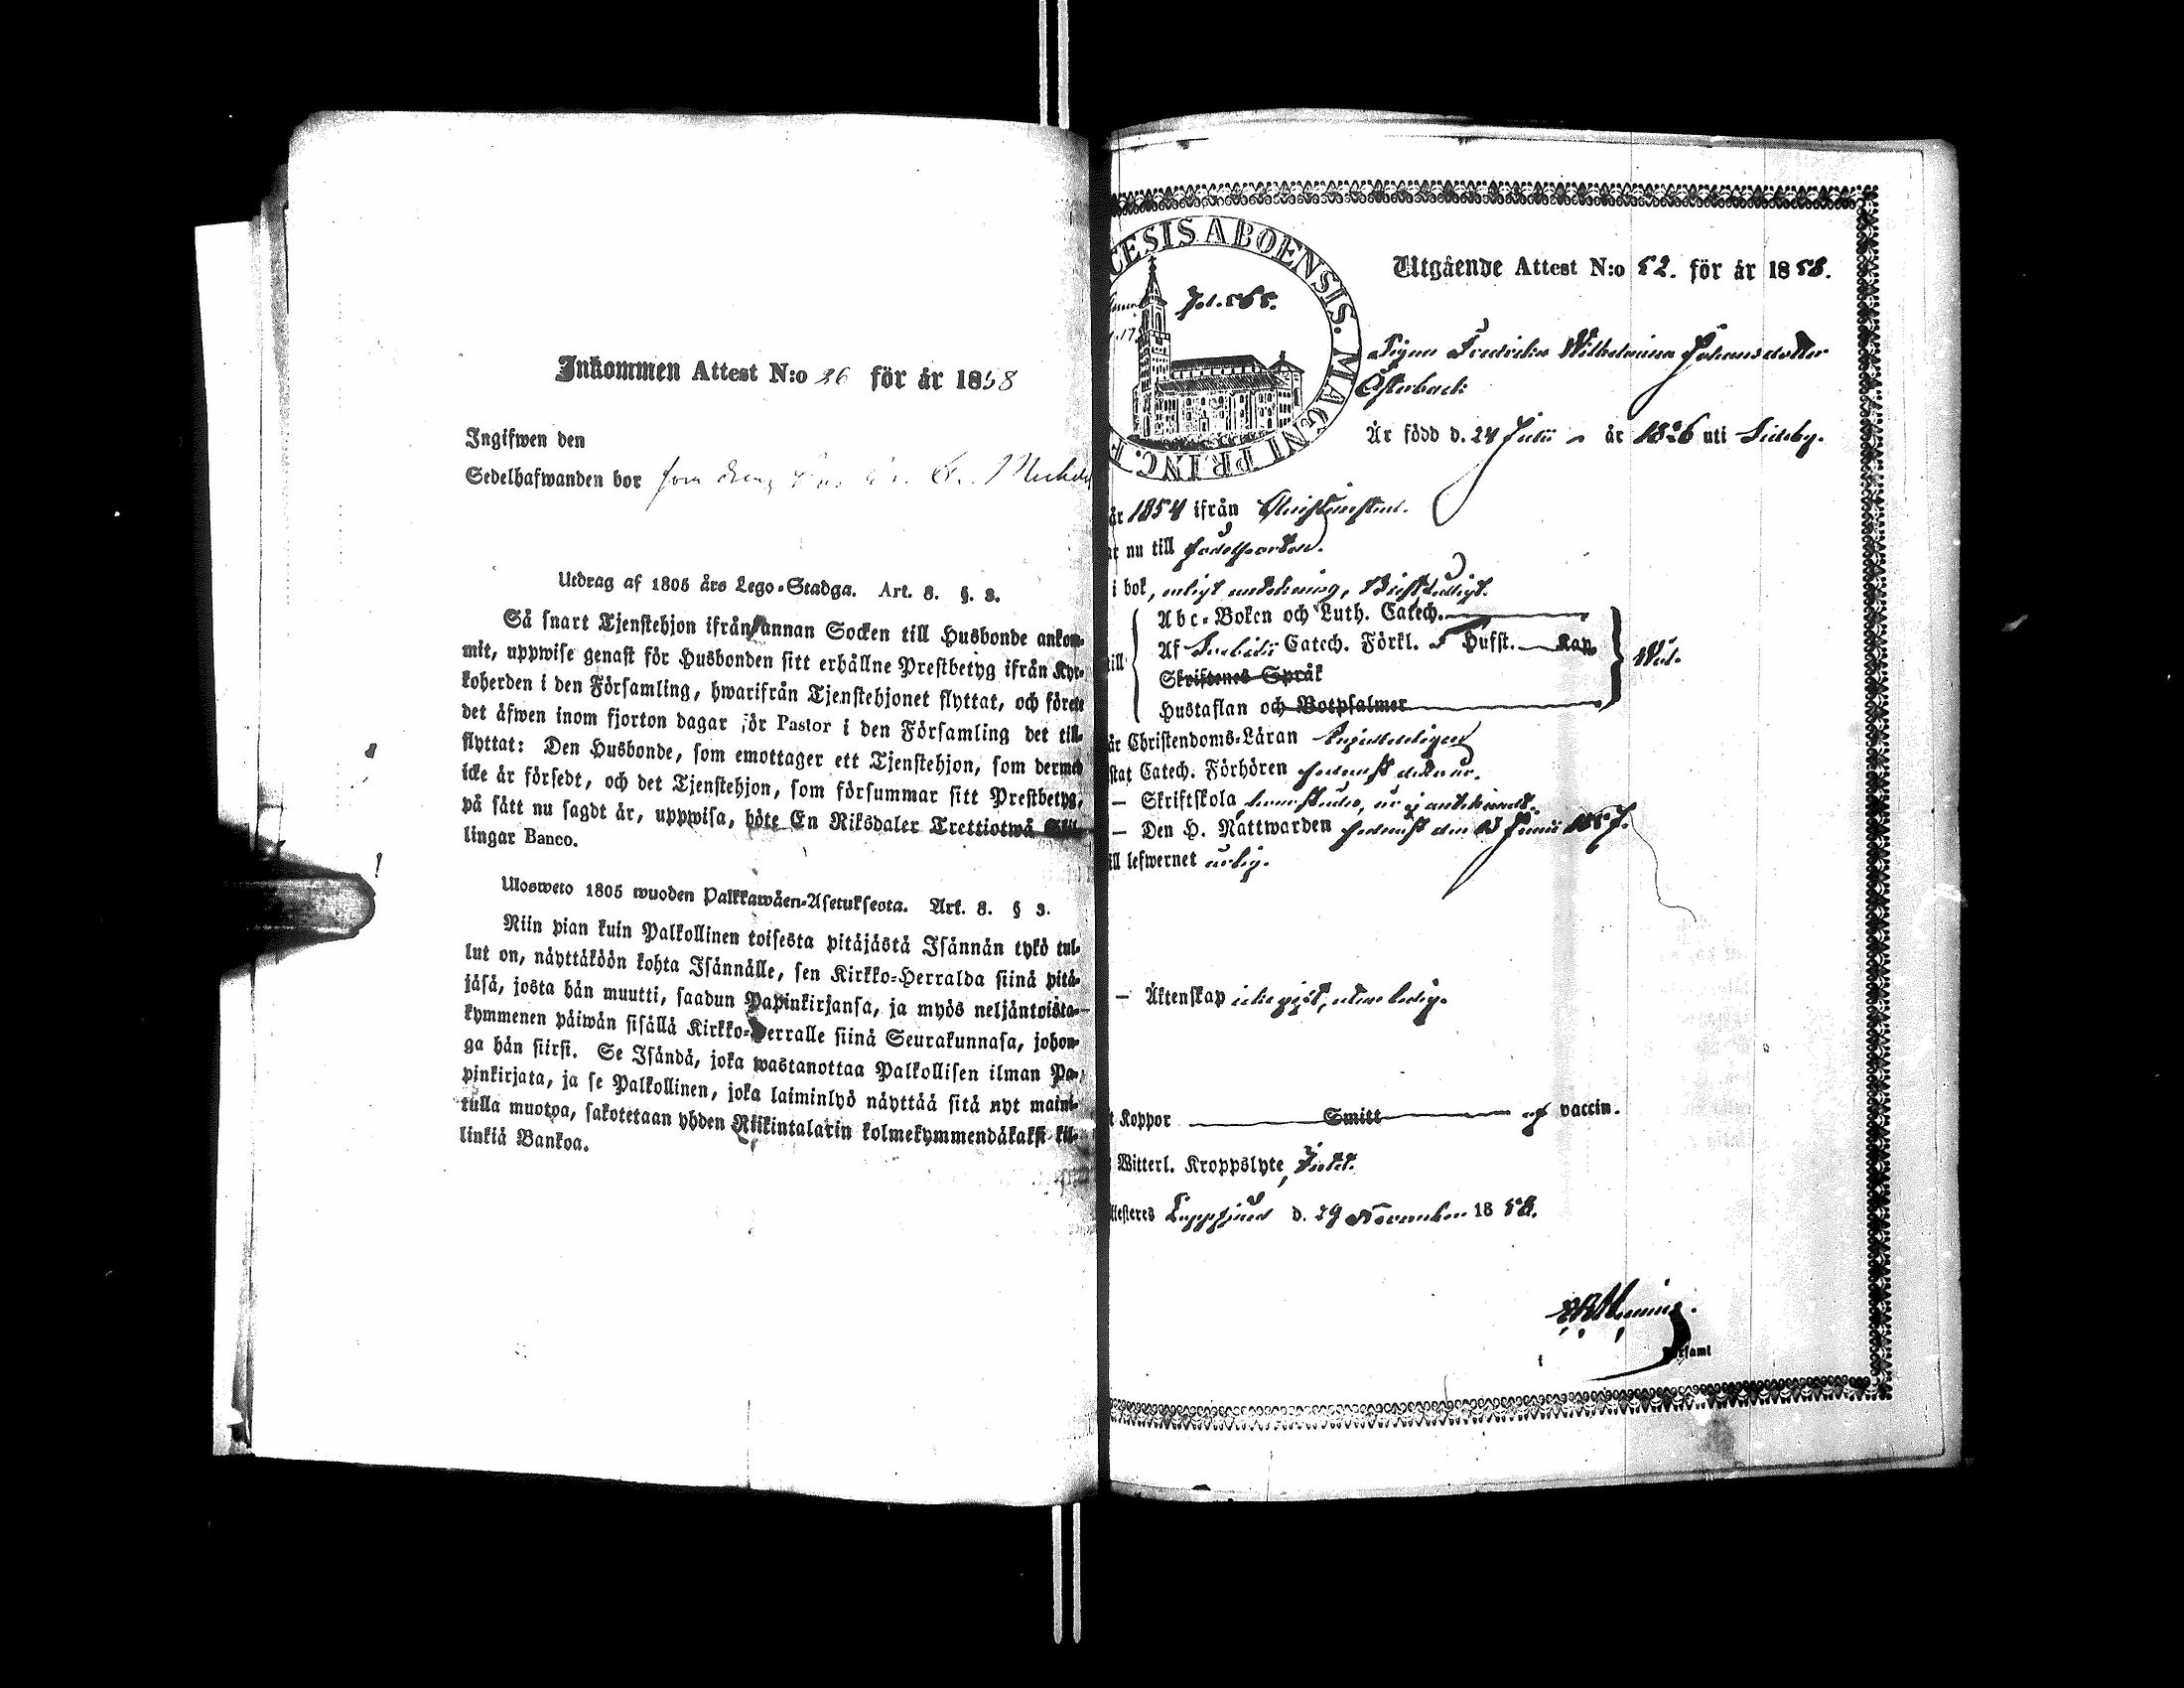 Inkommen Attest N:o 26 för år 1858
Ingifwen den
Sedelhafwanden bor som dreng
Utdrag af 1805 års Lego-Stadga. Art. 8. §. 3.
Så snart Tjenstehjon ifrån annan Socken till Husbonde ankom-
mit, uppwise genast för Husbonden sitt erhållne Prestbetyg ifrån Kyr-
koherden i den Församling, hwarifrån Tjenstehjonet flyttat, och förete
det äfwen inom fjorton dagar för Pastor i den Församling det till-
flyttat: Den Husbonde, som emottager ett Tjenstehjon, som dermed
icke är försedt, och det Tjenstehjon, som försummar sitt Prestbetyg,
på sätt nu sagdt är, uppwisa, böte En Riksdaler Trettiotwå Skil-
lingar Banco.
Ulosweto 1805 wuoden Palkkawäen-Asetuksesta. Art. 8. § 3.
Niin pian kuin Palkollinen toisesta pitäjästä Isännän tykö tul-
lut on, näyttäköön kohta Isännälle, sen Kirkko-Herralda siinä pitä-
jäsä, josta hän muutti, saadun Papinkirjansa, ja myös neljäntoista-
kymmenen päiwän sisällä Kirkko-Herralle siinä Seurakunnasa, johon-
ga hän siirsi. Se Isändä, joka wastanottaa Palkollisen ilman Pa-
pinkirjata, ja se Palkollinen, joka laiminlyö näyttää sitä nyt maini-
tulla muotoa, sakotetaan yhden Riikintalarin kolmekymmendäkaksi kil-
linkiä Bankoa.
CESIS ABOENSIS. MAGNI PRINC. F
Fol. 565.
Utgående Attest N:o 52. för år 1858.
Pigan Fredrika Wilhelmina Johansdotter
Österback
Är född d. 24 Julii år 1826 uti Sideby.
år 1854 ifrån Christinestad.
nu till födelseorten.
i bok, enligt anteckning,
Abc-Boken och Luth. Catech.
Af Svebelii Catech. Förkl. 5 Hufst. Kap.
Skriftenes Språk
Hustaflan och Botpsalmer
Wäl.
är Christendoms-Läran
stat Catech. Förhören sednast detta år.
— Skriftskola
— Den H. Nattwarden sednast den 13 Junii 1857.
ill lefwernet ärlig.
— Äktenskap icke gift, utan ledig.
t Koppor Smitt af vaccin.
Witterl. Kroppslyte, Intet.
testeres Lappfjärd d. 29 November 1858.